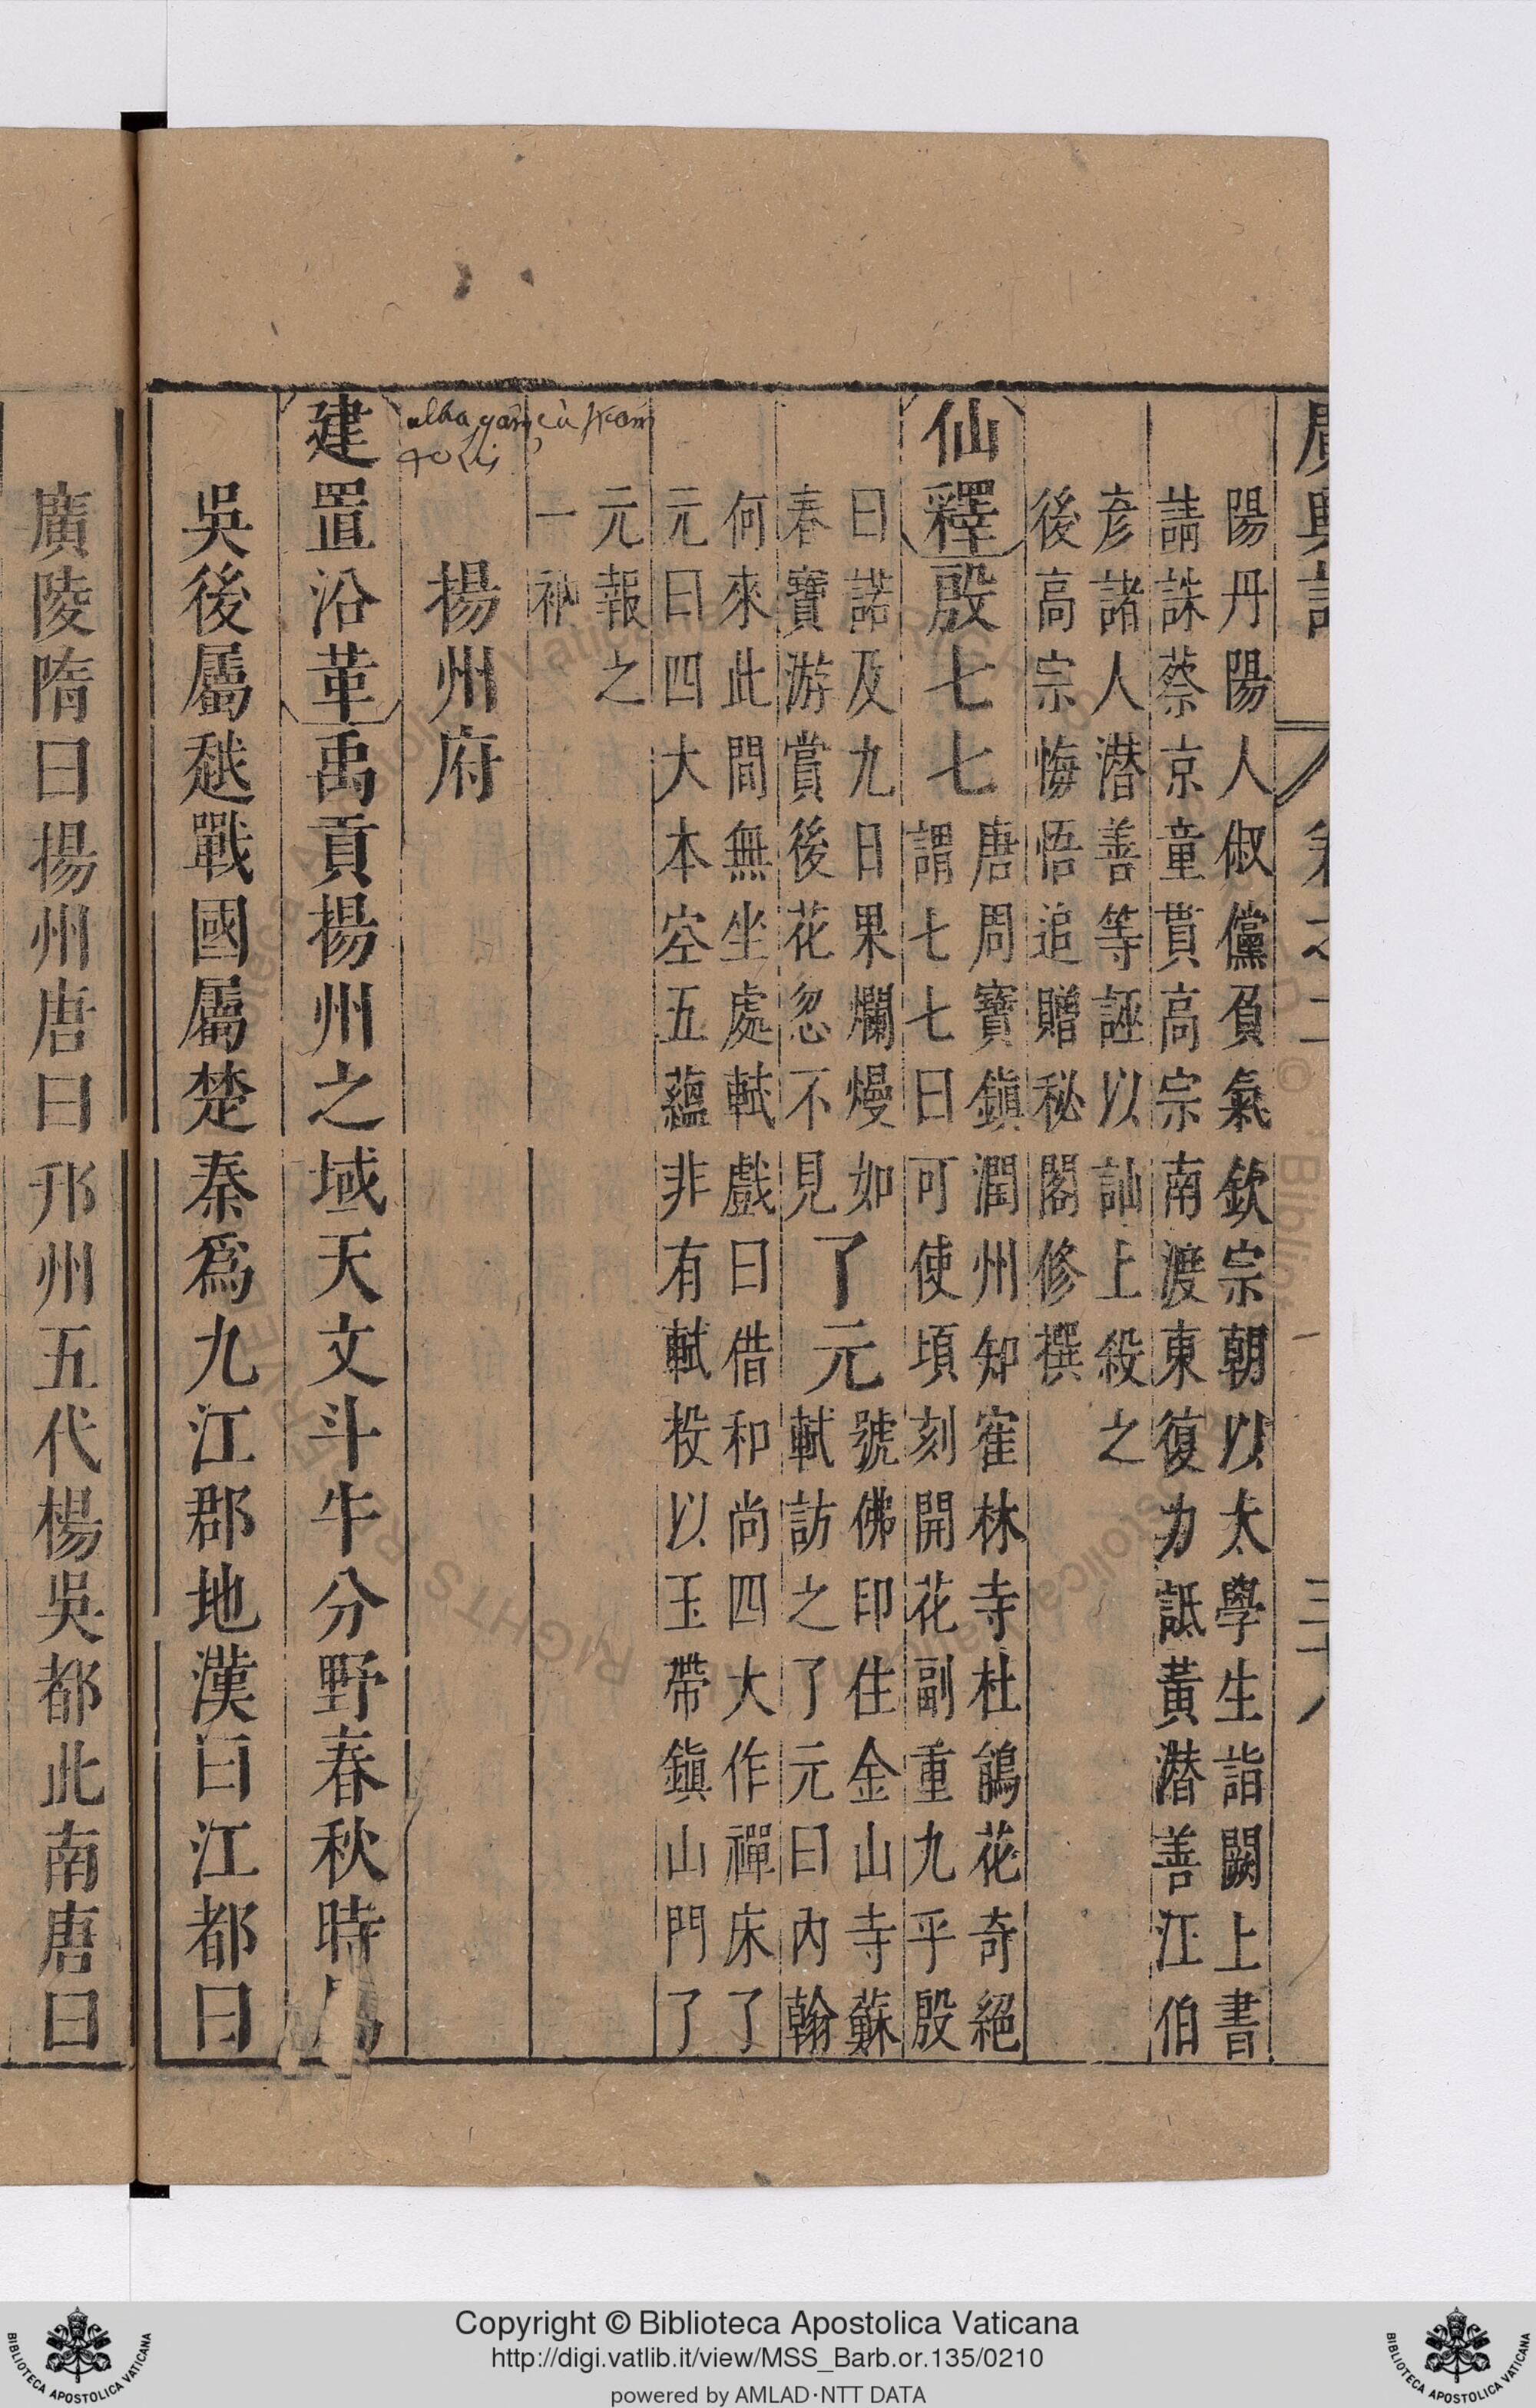 陽丹陽人俶儻負氣欽宗朝以太學生詣闕上書
請誅蔡京童貫高宗南渡東復力詆黃潛善汪伯
彥諸人潛善等誣以訕上殺之
後高宗悔悟追贈秘閣修撰
仙釋 殷七七
唐周寶鎮潤州知寉林寺杜鵑花奇絕
謂七七曰可使頃刻開花副重九乎殷
曰諾及九日果爛熳如
春寶游賞後花忽不見
了元
號佛印住金山寺蘇
軾訪之了元曰內翰
何來此間無坐處軾戲曰借和尚四大作禪床了
元曰四大本空五蘊非有軾投以玉帶鎮山門了
元報之
一衲
揚州府
建置沿革 禹貢揚州之域天文斗牛分野春秋時
吳後屬越戰國屬楚秦爲九江郡地漢曰江都曰
廣陵隋曰揚州唐曰邗州五代楊吳都此南唐曰
Copyright © Biblioteca Apostolica Vaticana
http://digi.vatlib.it/view/MSS_Barb.or.135/0210
powered by AMLAD·NTT DATA
BIBLIOTECA APOSTOLICA VATICANA
BIBLIOTECA APOSTOLICA VATICANA